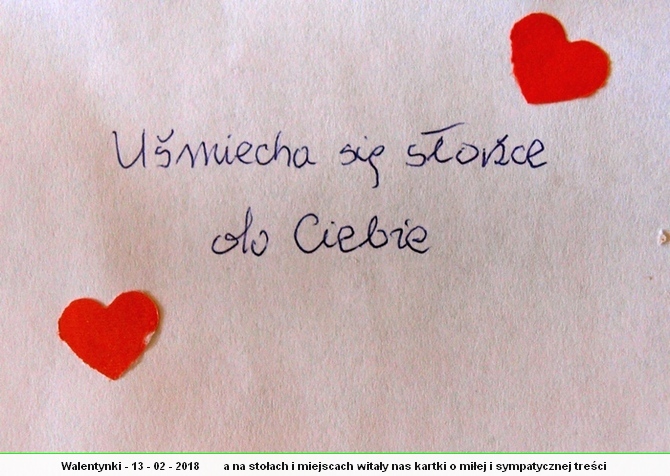 Uśmiecha się słońce
do Ciebie
Walentynki - 13 - 02 - 2018 a na stołach i miejscach witały nas kartki o miłej i sympatycznej treści